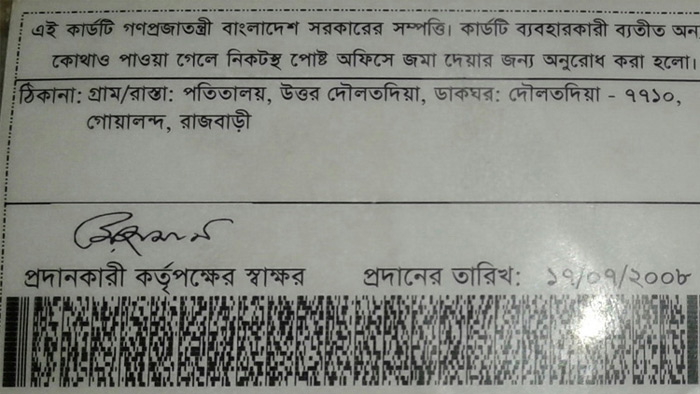 এই কার্ডটি গণপ্রজাতন্ত্রী বাংলাদেশ সরকারের সম্পত্তি। কার্ডটি ব্যবহারকারী ব্যতীত অন
কোথাও পাওয়া গেলে নিকটস্থ পোষ্ট অফিসে জমা দেয়ার জন্য অনুরোধ করা হলো।
ঠিকানা: গ্রাম/রাস্তা: পতিতালয়, উত্তর দৌলতদিয়া, ডাকঘর: দৌলতদিয়া - ৭৭১০,
গোয়ালন্দ, রাজবাড়ী
প্রদানকারী কর্তৃপক্ষের স্বাক্ষর প্রদানের তারিখ: ১৭/০৭/২০০৮